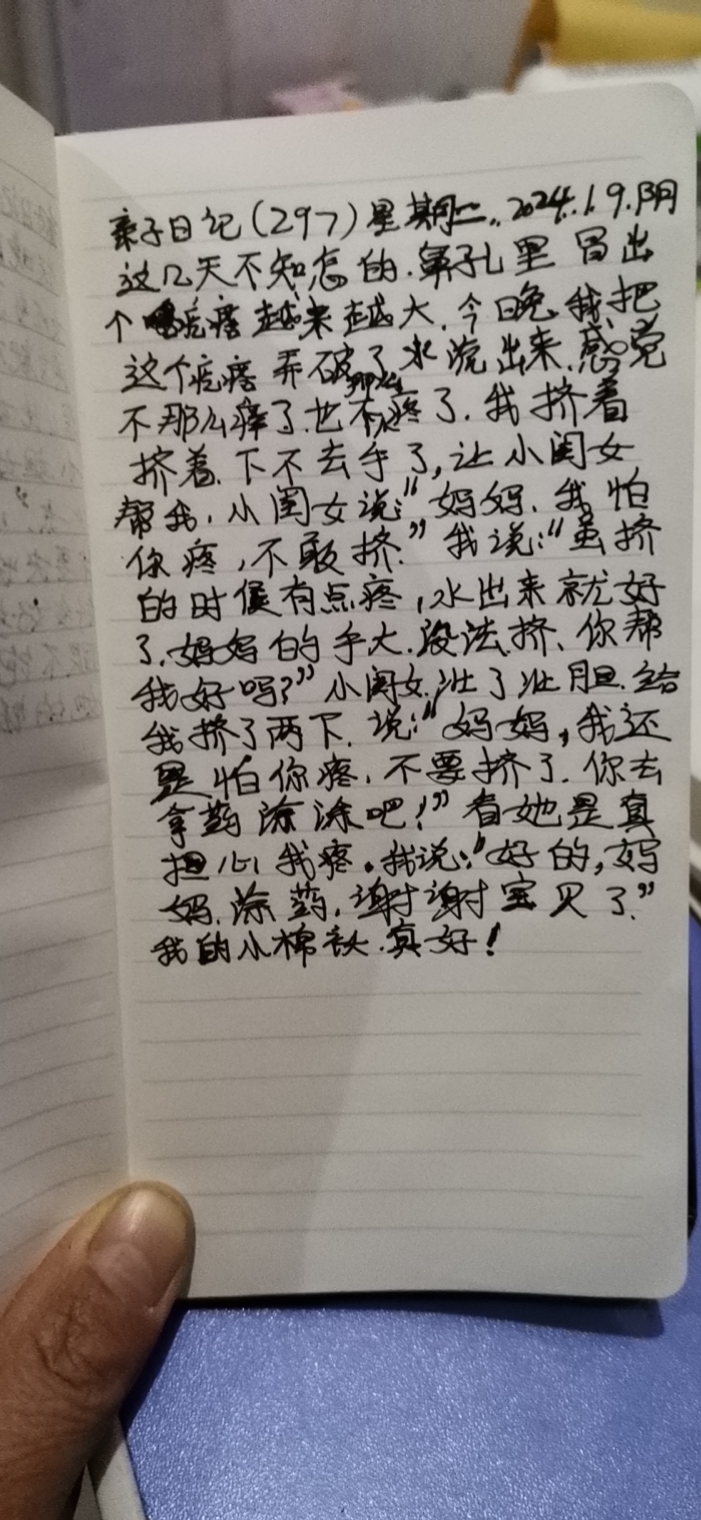 亲子日记(297)星期二.2024.1.9.阴
这几天不知怎的.鼻孔里冒出
个疙瘩越来越大.今晚我把
这个疙瘩弄破了水流出来.感觉
不那么痒了.也不那么疼了.我挤着
挤着.下不去手了,让小闺女
帮我.小闺女说:“妈妈.我怕
你疼,不敢挤.”我说:“虽挤
的时候有点疼,水出来就好
了.妈妈的手大.没法挤.你帮
我好吗?”小闺女壮了壮胆.给
我挤了两下.说:“妈妈,我还
是怕你疼.不要挤了.你去
拿药涂涂吧!”看她是真
担心我疼.我说:“好的,妈
妈.涂药.谢谢宝贝了.”
我的小棉袄.真好!